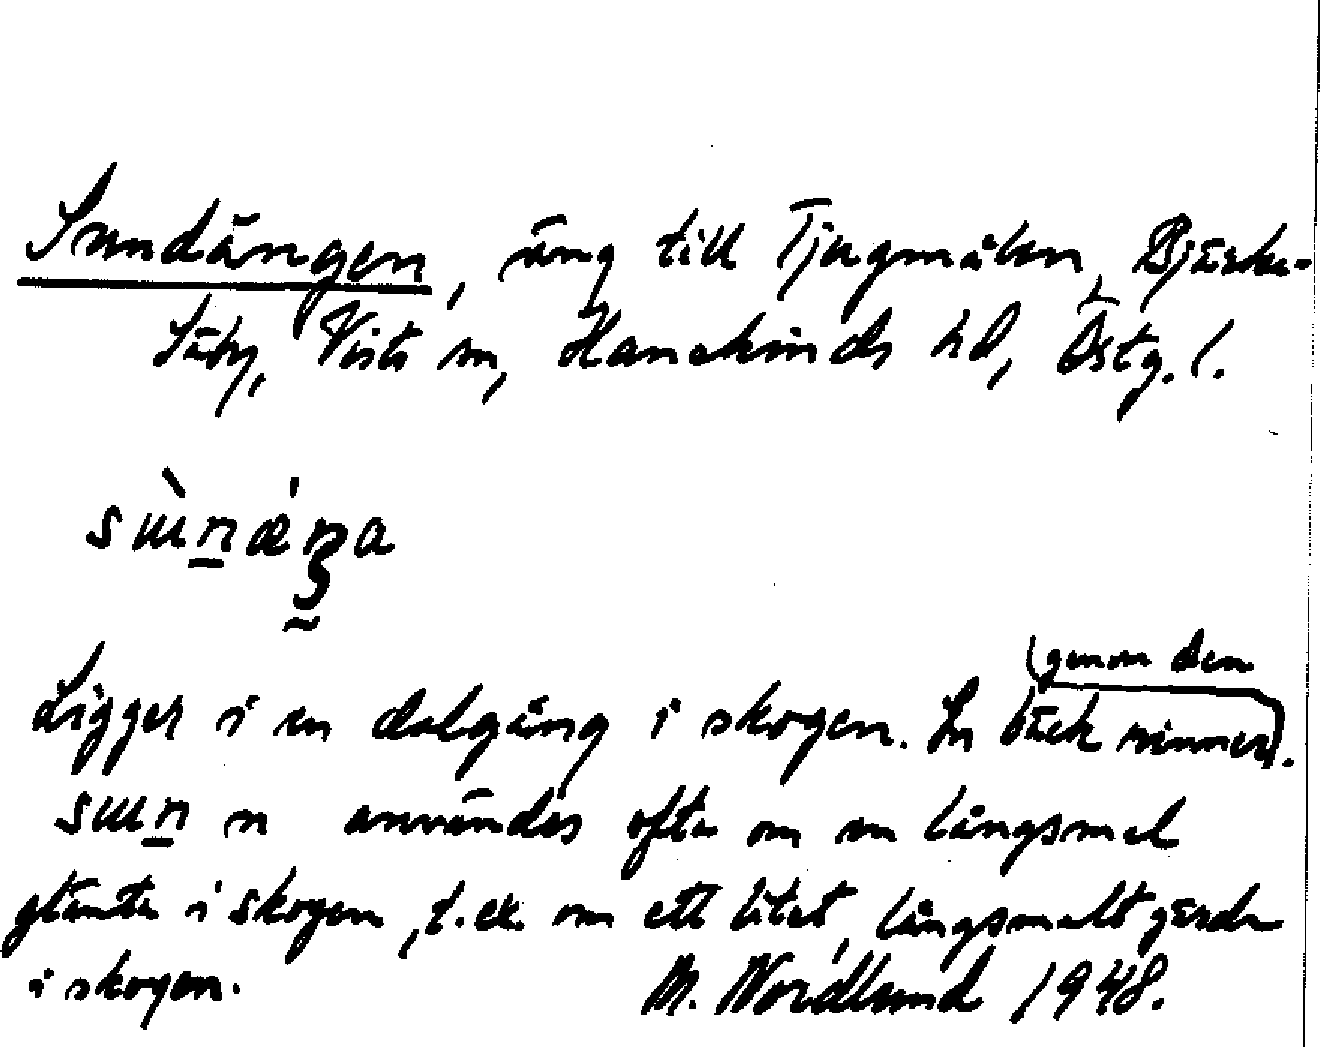 Sundängen, äng till Tjugmålen, Bjärka-
Säby, Vists sn, Hanekinds hd, Östg. l.
sɯ̀n̲æ̀ŋa
Ligger i en dalgång i skogen. En bäck rinner (genom den).
sɯn̲ n användes ofta om en långsmal
glänta i skogen, t.ex. om ett litet, långsmalt gärde
i skogen.
M. Nordlund 1948.